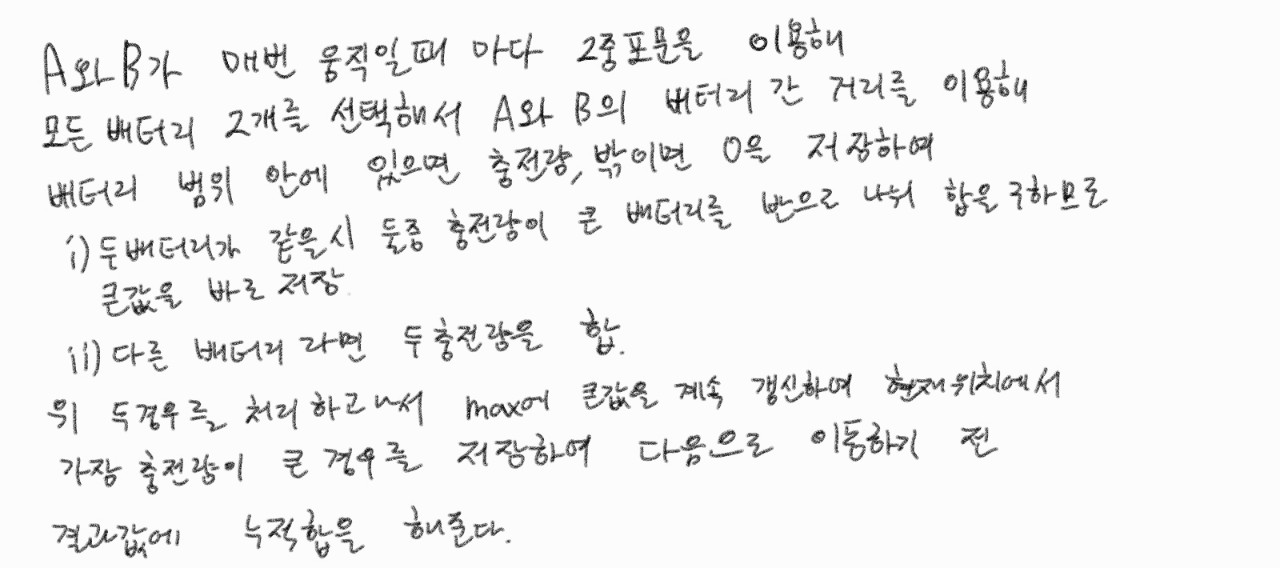 A와 B가 매번 움직일때 마다 2중포문을 이용해
모든 배터리 2개를 선택해서 A와 B의 배터리 간 거리를 이용해
배터리 범위 안에 있으면 충전량, 밖이면 0을 저장하여
i) 두배터리가 같을시 둘중 충전량이 큰 배터리를 반으로 나눠 합을 구하므로
큰값을 바로 저장.
ii) 다른 배터리 라면 두 충전량을 합.
위 두경우를 처리하고나서 max에 큰값을 계속 갱신하여 현재위치에서
가장 충전량이 큰 경우를 저장하여 다음으로 이동하기 전
결과값에 누적합을 해준다.